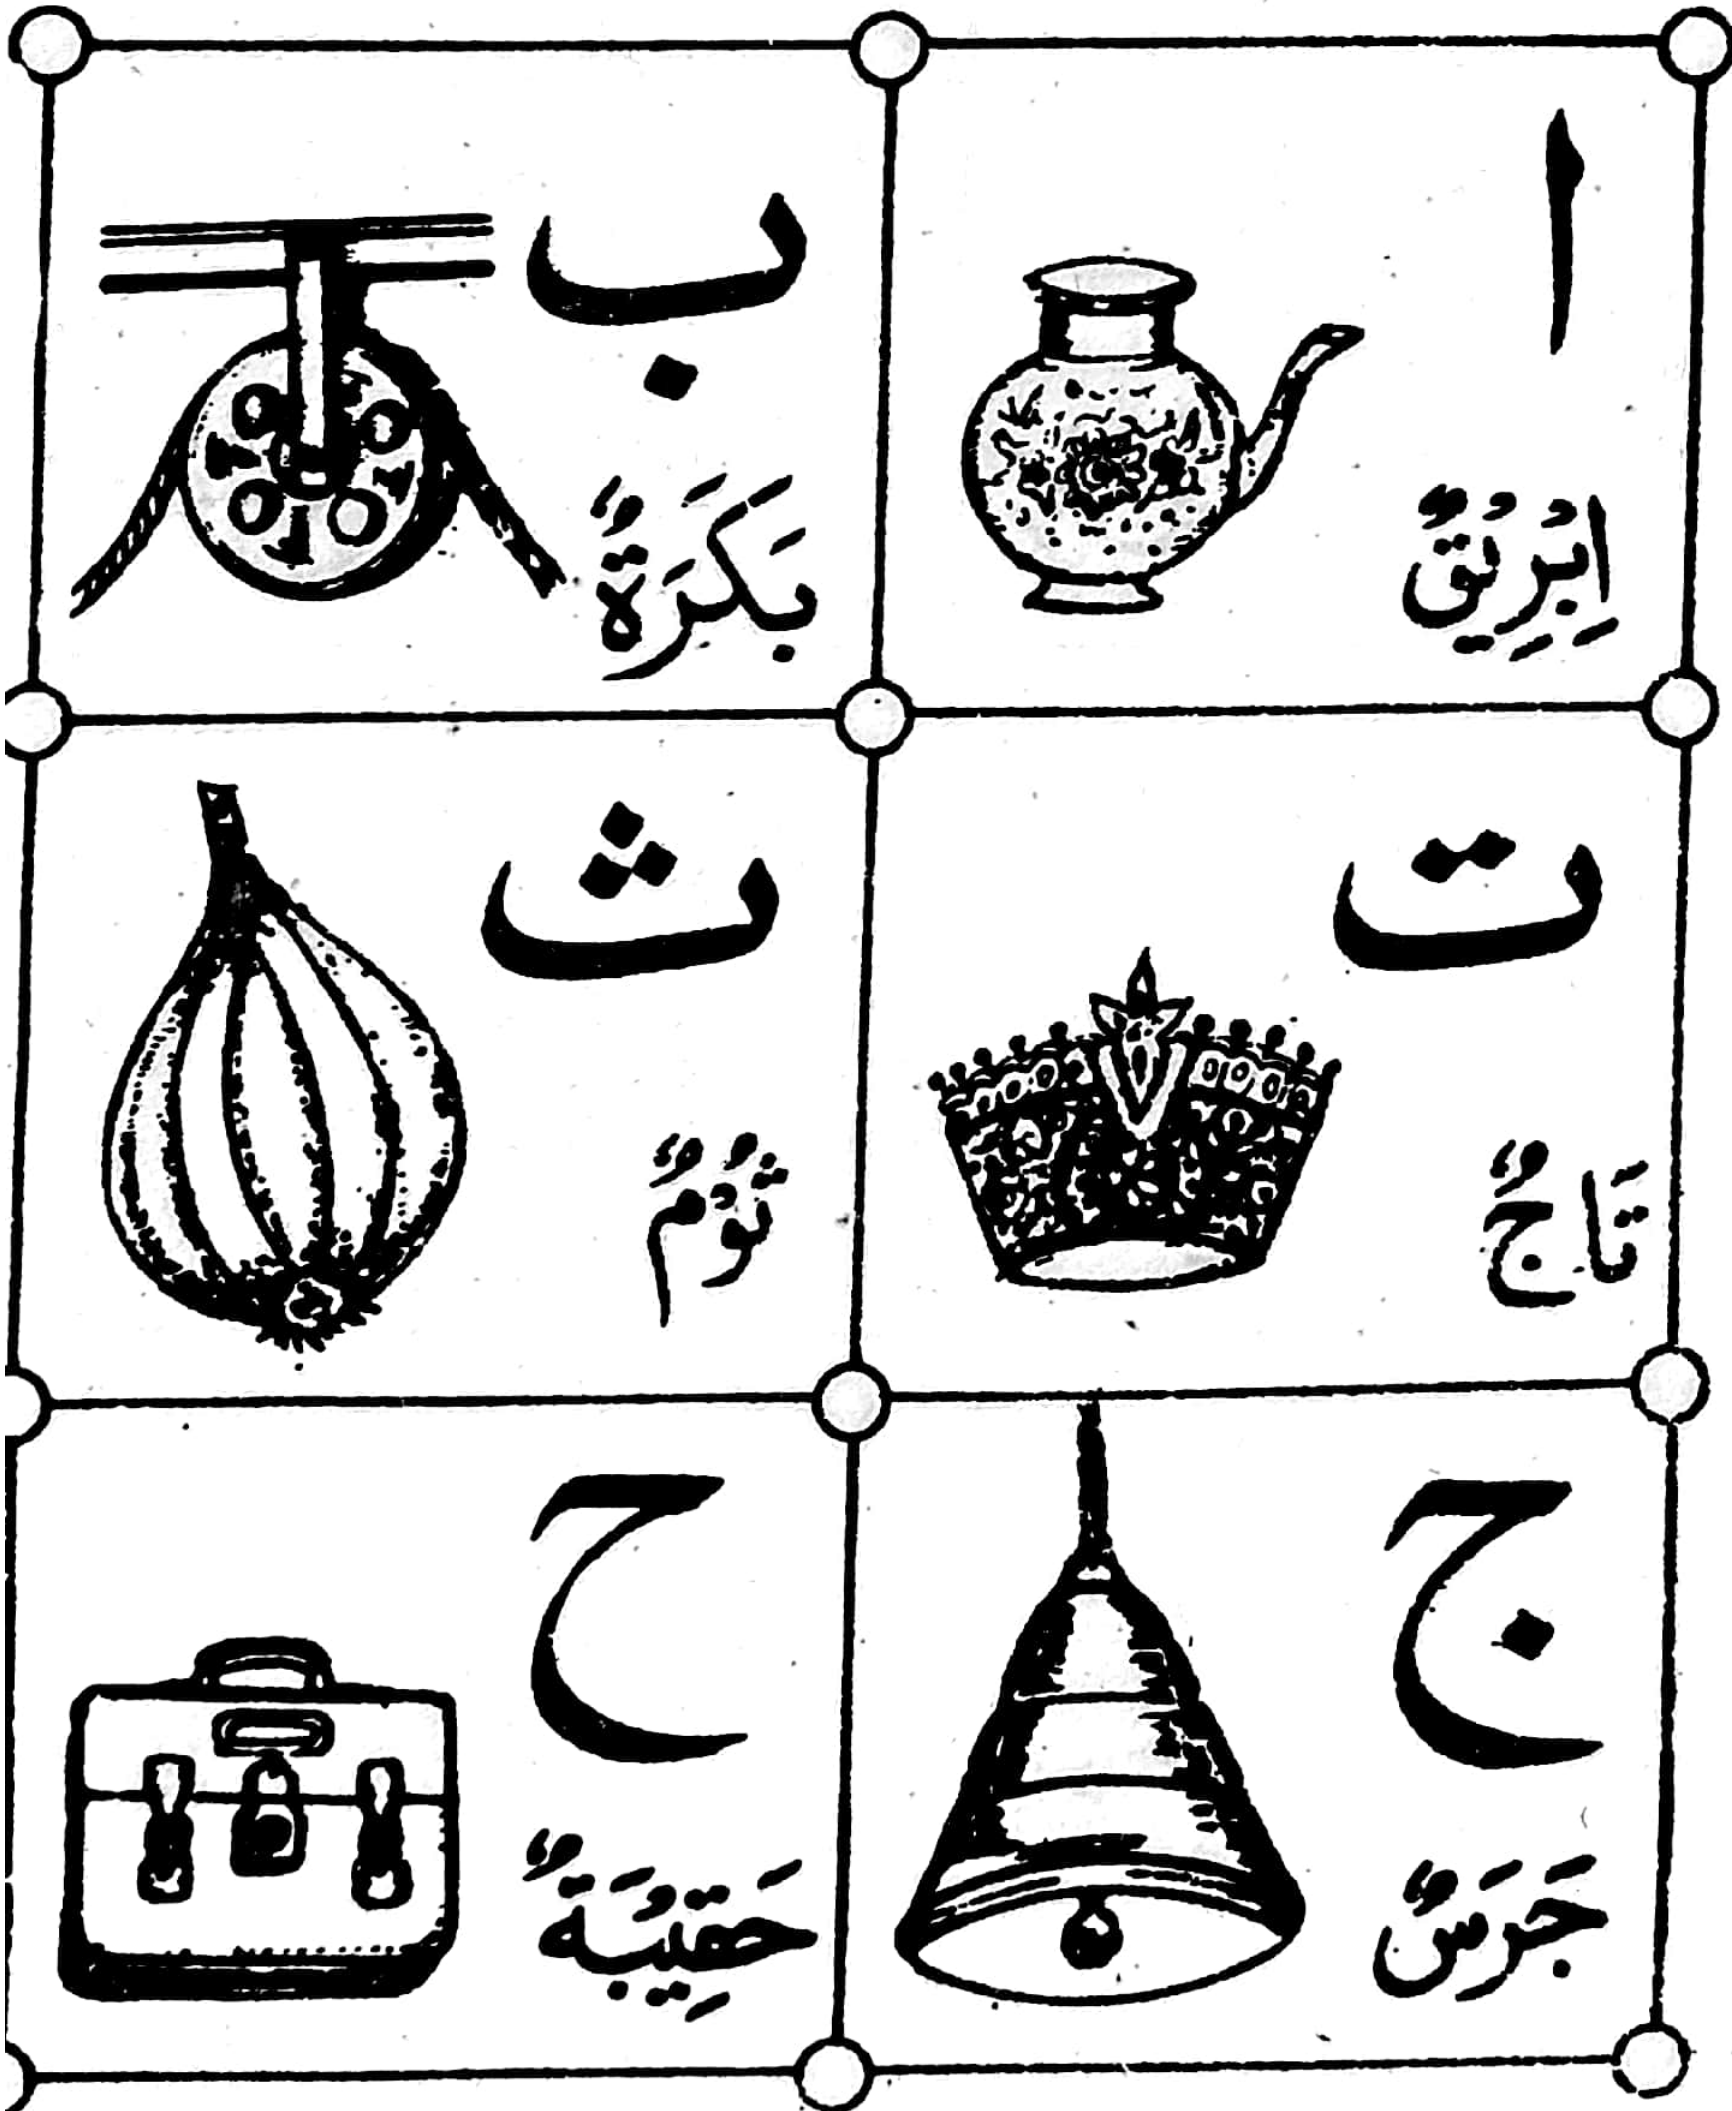 ا
اِبْرِيْقٌ
ب
بَكَرَةٌ
ت
تَاجٌ
ث
ثُوْمٌ
ج
جَرَسٌ
ح
حَقِيْبَةٌ